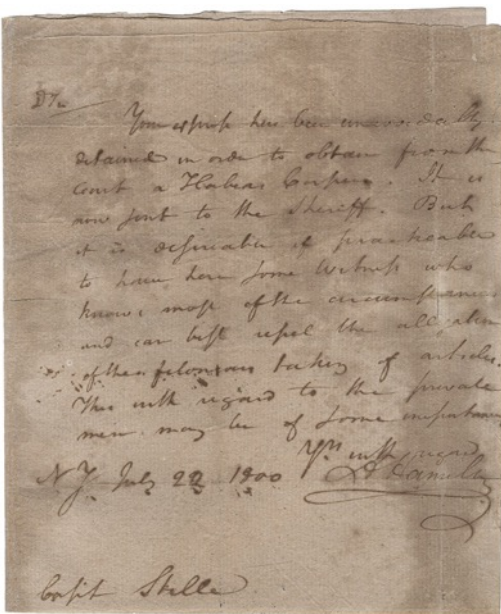 Your express has been unavoidably
detained in order to obtain from the
Court a Habeas Corpus. It is
now sent to the Sheriff. But
it is desireable if practicable
to have here some Witness who
knows most of the circumstances
and can best repel the allegation
of the felonious taking of articles.
This with regard to the private
men may be of some importance
Yrs with regard
A Hamilton
N Y. July 22 1800
Capt Stille